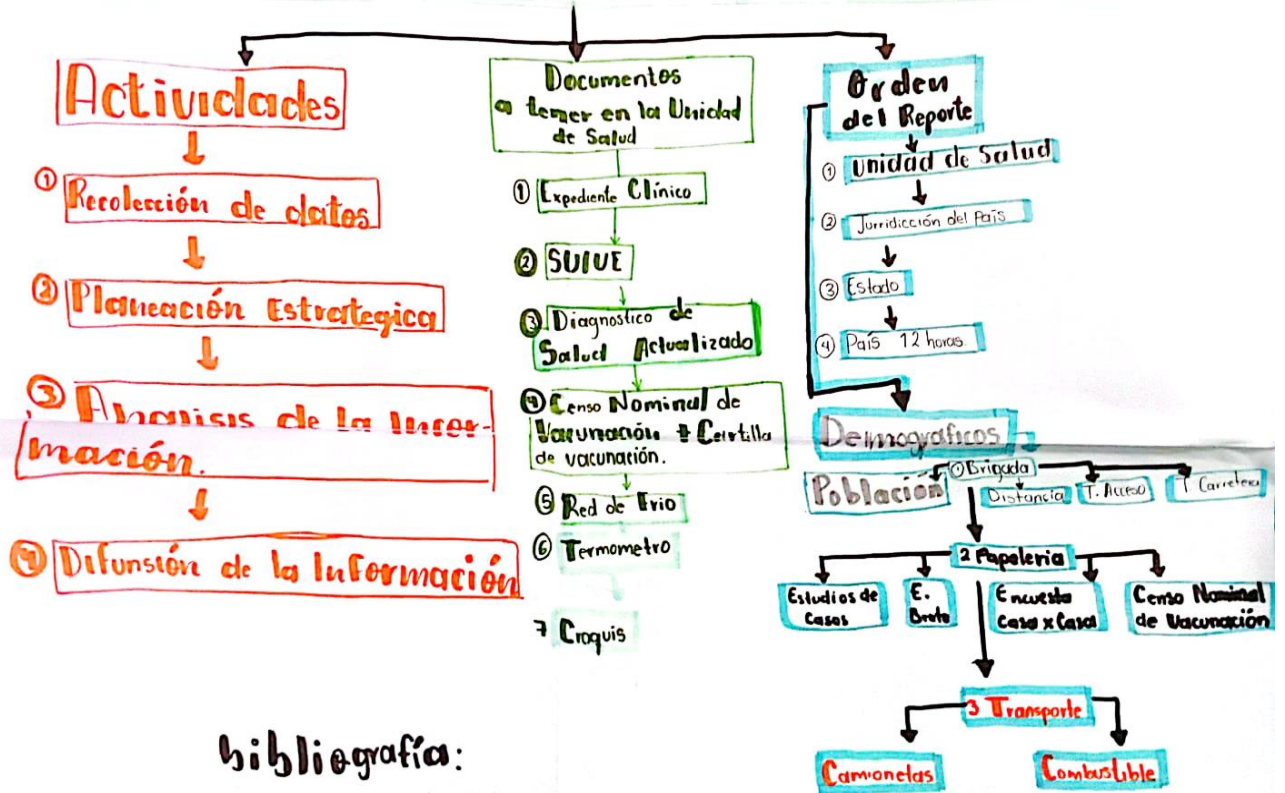 Actividades
① Recolección de datos
② Planeación Estrategica
③ Analisis de la Infor-
mación.
④ Difunsión de la Información
Documentos
a tener en la Unidad
de Salud
① Expediente Clínico
② SUIVE
③ Diagnostico de
Salud Actualizado
④ Censo Nominal de
Vacunación + Cartilla
de vacunación.
⑤ Red de Frio
⑥ Termometro
7 Croquis
Orden
del Reporte
① Unidad de Salud
② Jurridicción del País
③ Estado
④ País 12 horas
Demograficos
① Brigada
Población
Distancia
T. Acceso
T. Carretera
2 Papeleria
Estudios de
Casos
E.
Brote
Encuesta
Casa x Casa
Censo Nominal
de Vacunación
3 Transporte
Camionetas
Combustible
bibliografía: